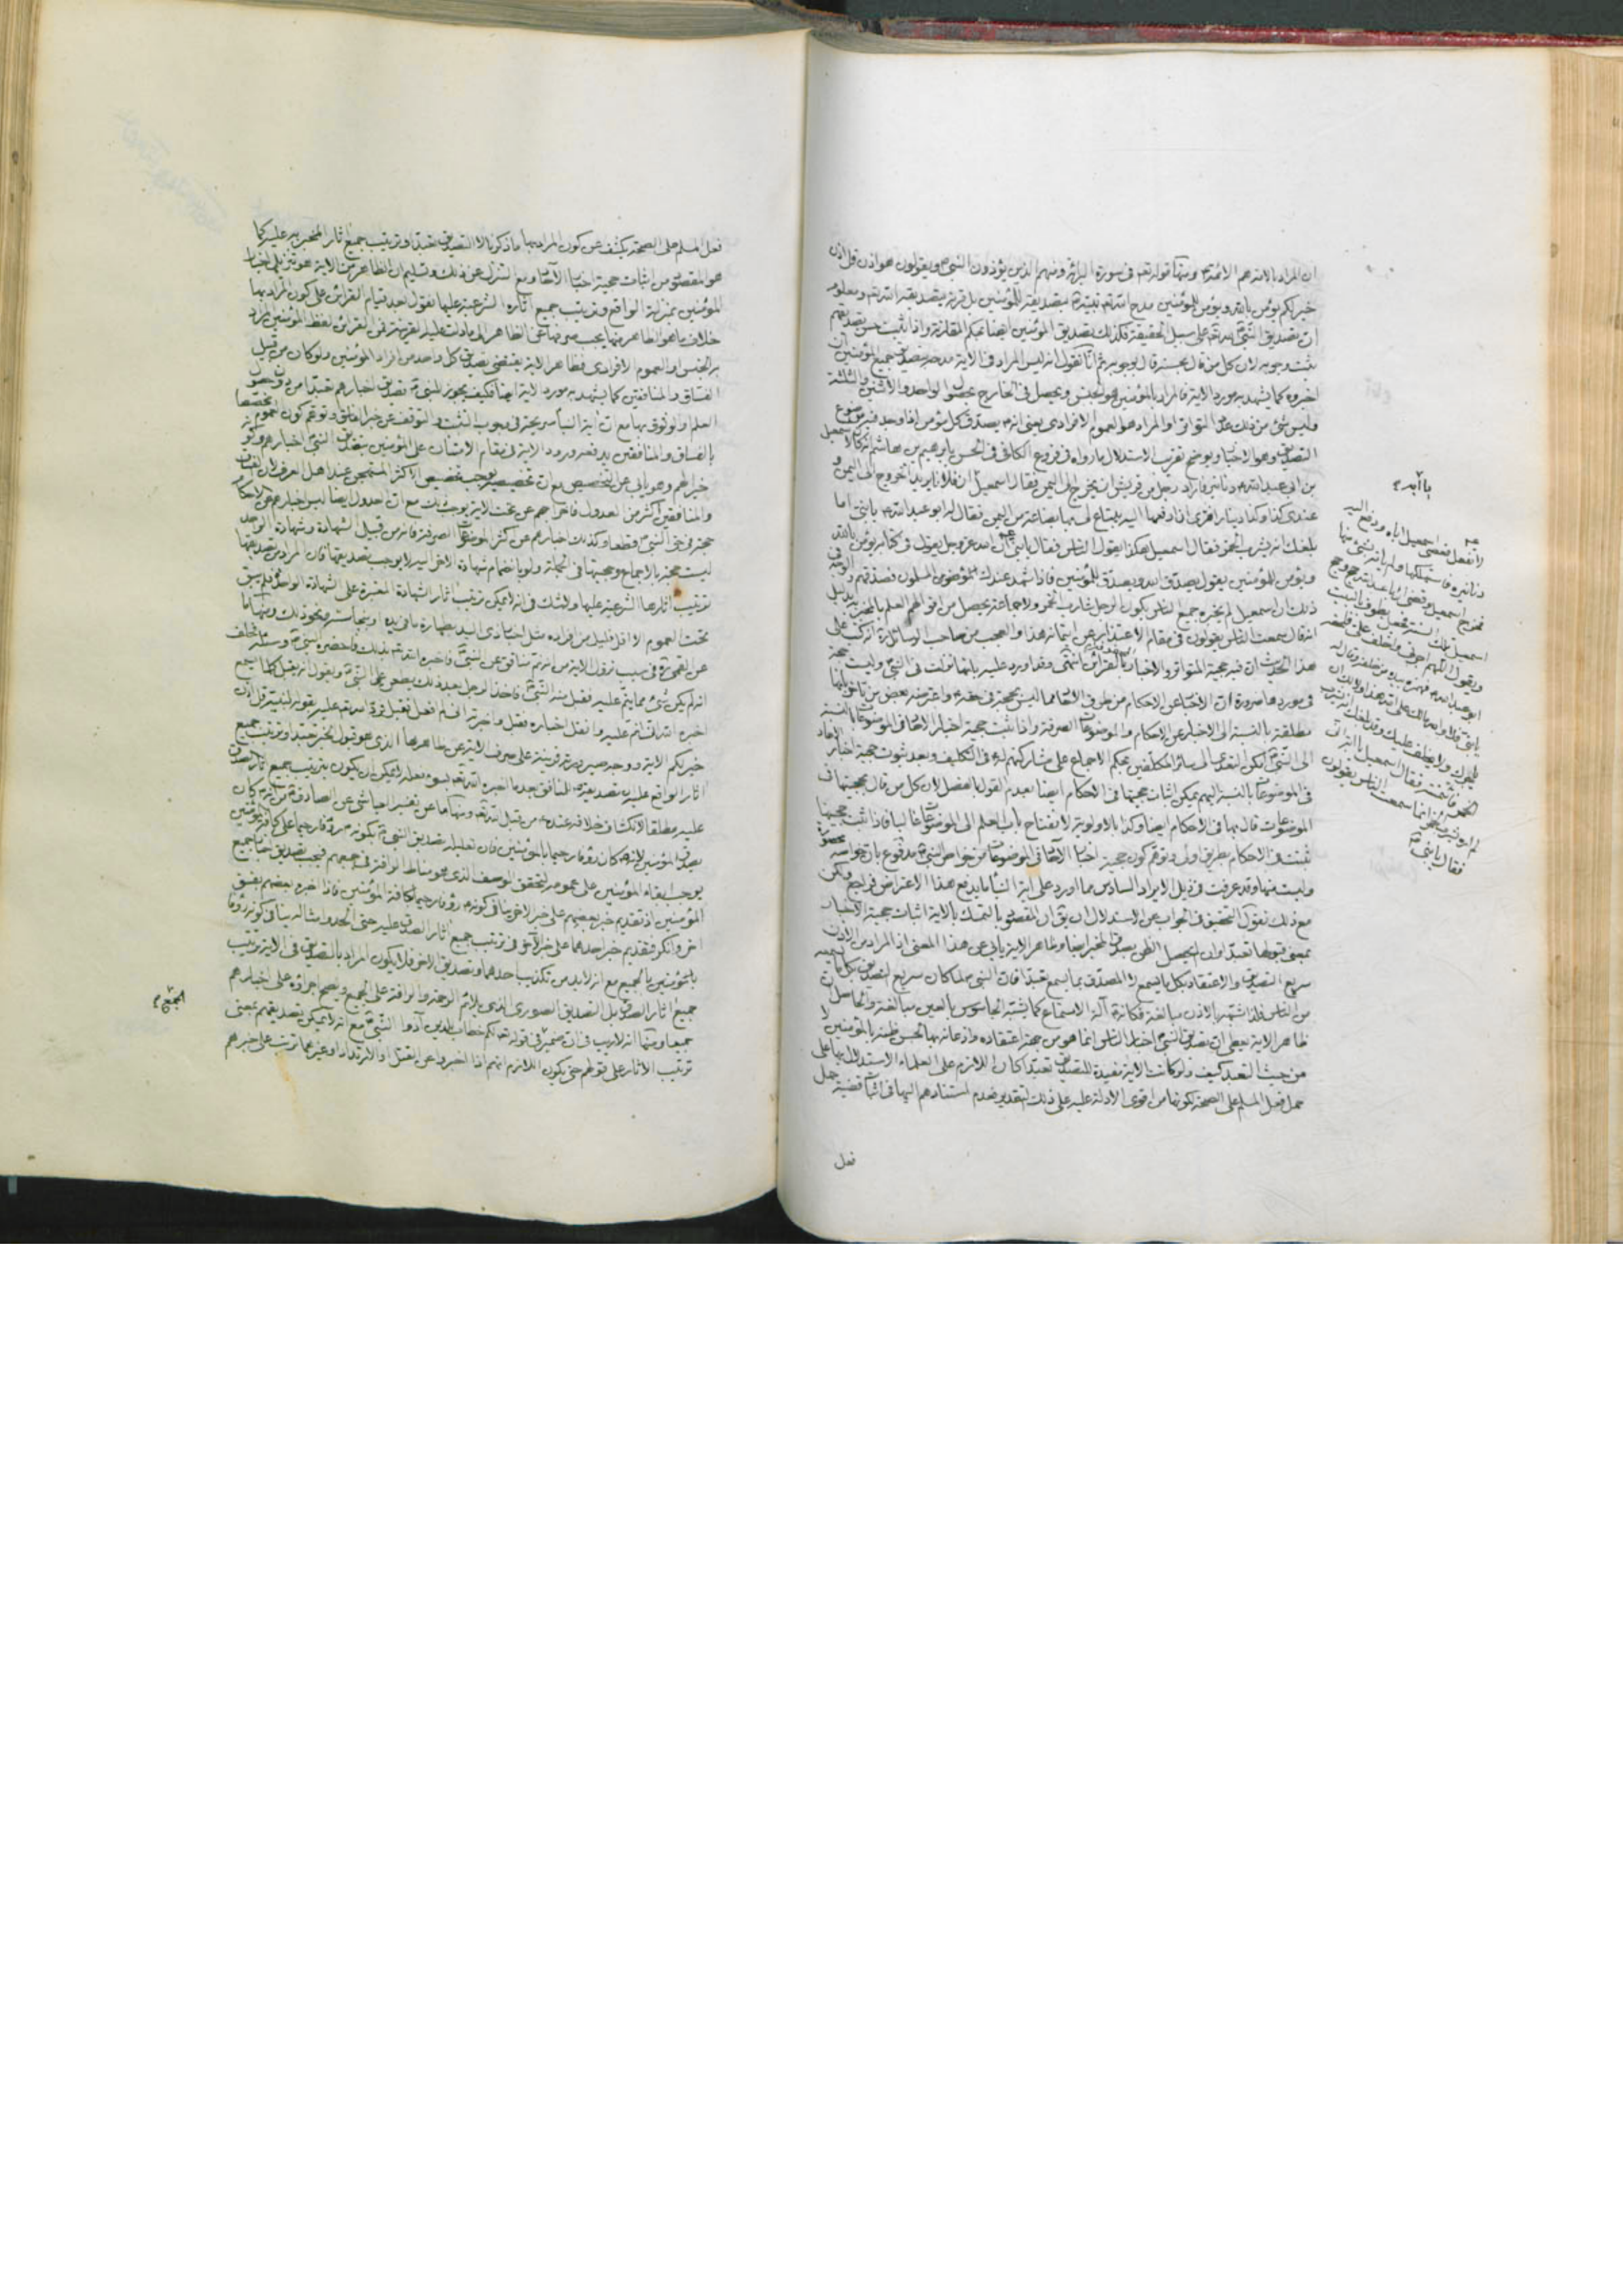 ان المراد بالاذن هم الائمة ومنها قوله تعالى في سورة البرائة ومنهم الذين يؤذون النبي ويقولون هو اذن قل اذن
خير لكم يؤمن بالله ويؤمن للمؤمنين مدح الله تعالى نبيه بتصديقه للمؤمنين بل قرنه بتصديقه الله تعالى ومعلوم
ان تصديق النبي لله تعالى على سبيل الحقيقة فكذلك تصديق المؤمنين ايضا بحكم المقارنة واذا ثبت حسن تصديقهم
ثبت وجوبه لان كل من قال بحسنه قال بوجوبه ثم انا نقول انه ليس المراد في الاية مدحه بتصديق جميع المؤمنين ان
اخبروه كما يشهد به مورد الاية فالمراد بالمؤمنين هو الجنس ويحصل في الخارج بحصول الواحد والاثنين والثلثة
وليس شئ من ذلك على التواتر او المراد هو العموم الافرادي يعني انه يصدق كل مؤمن
التصديق وهو الاخبار ويوضح تقريب الاستدلال ما رواه في فروع الكافي في الحسن بابرهيم بن هاشم انه كان لاسمعيل
بن ابي عبد الله دنانير فاراد رجل من قريش ان يخرج الى اليمن فقال اسمعيل ان فلانا يريد الخروج الى اليمن و
عندي كذا وكذا دينارا فترى ان ادفعها اليه يبتاع لي بها بضاعة من اليمن فقال له ابو عبد الله يا بني اما
بلغك انه يشرب الخمر فقال اسمعيل هكذا يقول الناس فقال يا بني ان الله عز وجل يقول في كتابه يؤمن بالله
ويؤمن للمؤمنين يقول يصدق الله ويصدق للمؤمنين فاذا شهد عندك المؤمنون المسلمون فصدقهم
ذلك ان اسمعيل لم يخبره جميع الناس بكون الرجل شارب الخمر ولا جماعة يحصل من اقوالهم العلم بالمخبر به بدليل
انه قال سمعت الناس يقولون في مقام الاعتذار عن ايتمانه هذا والعجب من صاحب الوسائل انه
هذا الحديث ان فيه حجية المتواتر والاخبار بالقرائن انتهى وقد اورد عليه
في موردها ضرورة ان الاخبار عن الاحكام من طرق الائمة مما ليس بحجة في حقه واعترضه بعض من تاخر بانها
مطلقة بالنسبة الى الاخبار عن الاحكام والموضوعات الصرفة واذا ثبت حجية اخبار الاحاد في الموضوعات بالنسبة
الى النبي امكن التعدي الى سائر المكلفين بحكم الاجماع على مشاركتهم له في التكليف وبعد ثبوت حجية اخبار الاحاد
في الموضوعات بالنسبة اليهم يمكن اثبات حجيتها في الاحكام ايضا بعدم القول بالفصل لان كل من قال بحجيتها في
الموضوعات قال بها في الاحكام ايضا وكذا بالاولوية لانفتاح باب العلم الى الموضوعات غالبا فاذا ثبت حجيتها
ثبتت في الاحكام بطريق اولى وتوهم كون حجية اخبار الاحاد في الموضوعات من خواص النبي مدفوع بان خواصه محصورة
وليست منها وقد عرفت في ذيل الايراد السادس مما اورد على اية النبأ ما يدفع هذا الاعتراض فراجع ولكن
مع ذلك نقول التحقيق في الجواب عن الاستدلال ان يقال ان المقصود بالتمسك بالاية اثبات حجية الاخبار
بمعنى قبولها تعبدا وان لم يحصل الظن بصدق المخبر ايضا وظاهر الاية يابى عن هذا المعنى اذ المراد من الاذن
سريع التصديق والاعتقاد بكل ما يسمع لا المصدق بما يسمع تعبدا فان النبي لما كان سريع التصديق بكل ما يسمعه
من الناس فلذا شبهه بالاذن مبالغة فكانه آلة الاستماع كما يشبه الجاسوس بالعين مبالغة والحاصل ان
ظاهر الاية يعطي ان تصديق النبي اخبار الناس انما هو من جهة اعتقاده واذعانه بها لحسن ظنه بالمؤمنين لا
من حيث التعبد كيف ولو كانت الاية مفيدة للتصديق تعبدا كان اللازم على العلماء الاستدلال بها على
حمل فعل المسلم على الصحة لكونها من اقوى الادلة عليه على ذلك التقدير فعدم استنادهم اليها في اثبات قضية حمل
فعل
لا تفعل فعصى اسمعيل اباه ودفع اليه
دنانيره فاستهلكها ولم ياته بشئ منها
فخرج اسمعيل وقضى ان ابا عبد الله حج وحج
اسمعيل تلك السنة فجعل يطوف بالبيت
ويقول اللهم اجرني واخلف علي فلحقه
ابو عبد الله فهمزه بيده من خلفه وقال له
يا بني فلا والله مالك على الله هذا ولا لك ان
ياجرك ولا يخلف عليك وقد بلغك انه يشرب
الخمر فائتمنته فقال اسمعيل يا ابه اني
لم اره يشرب الخمر انما سمعت الناس يقولون
فقال يا بني
فعل المسلم على الصحة يكشف عن كون المراد بها ما ذكرنا لا التصديق تعبدا وترتيب جميع اثار المخبر به عليه كما
هو المقصود من اثبات حجية اخبار الاحاد ومع التنزل عن ذلك وتسليم ان الظاهر من الاية هو تنزيل اخبار
المؤمنين بمنزلة الواقع وترتيب جميع اثاره الشرعية عليها نقول بعد قيام القرائن على كون المراد بها
خلاف ما هو الظاهر منها يجب صرفها عن الظاهر الى ما دلت عليه القرينة فمن القرائن لفظ المؤمنين
به الجنس والعموم الافرادي فظاهر الاية يقتضي تصديق كل واحد من افراد المؤمنين ولو كان من قبيل
الفساق والمنافقين كما يشهد به مورد الاية ايضا فكيف يجوز للنبي تصديق اخبارهم تعبدا من دون حصول
العلم والوثوق بها مع ان اية النبأ صريحة في وجوب التثبت والتوقف عن خبر الفاسق وتوهم كون العموم مخصصا
بالفساق والمنافقين يدفعه ورود الاية في مقام الامتنان على المؤمنين بتصديق النبي اخبارهم وانه
خير لهم وهو يابى عن التخصيص مع ان تخصيصه يوجب تخصيص الاكثر المستهجن عند اهل العرف لان الفساق
والمنافقين اكثر من العدول فاخراجهم عن تحت الاية يوجب ذلك مع ان العدول ايضا ليس اخبارهم عن الاحكام
حجة في حق النبي قطعا وكذلك اخبارهم عن اكثر الموضوعات الصرفة فانه من قبيل الشهادة وشهادة الواحد
ليست بحجة بالاجماع وحجيتها في الجملة ولو بانضمام شهادة الاخر اليه لا يوجب تصديقها فان المراد من تصديقها
ترتيب اثارها الشرعية عليها ولا شك في انه لا يمكن ترتيب اثار الشهادة المعتبرة على الشهادة الواحدة فلم يبق
تحت العموم الا اقل قليل من افراده مثل اخبار ذي اليد بطهارة ما في يده او بنجاسته ونحو ذلك ومنها ما
عن القمي في سبب نزول الاية من انه نم منافق عن النبي واخبره الله تعالى بذلك فاحضره النبي وسئله فحلف
انه لم يكن شئ مما ينم عليه فقبل منه النبي فاخذ الرجل بعد ذلك يطعن على النبي ويقول انه يقبل كلما يسمع
اخبره الله اني انم عليه وانقل اخباره فقبل واخبرته اني لم افعل فقبل فرد الله تعالى عليه بقوله لنبيه قل اذن
خير لكم الاية ووجه صيرورته قرينة على صرف الاية عن ظاهرها الذي هو قبول الخبر تعبدا وترتيب جميع
اثار الواقع عليه ان تصديقه للمنافق بعد ما اخبره الله تعالى بسوء فعله لا يمكن ان يكون بترتيب جميع اثار الصدق
عليه مطلقا لانكشاف خلافه عنده من قبل الله تعالى ومنها ما عن تفسير العياشي عن الصادق من انه كان
يصدق المؤمنين لانه كان رؤفا رحيما بالمؤمنين فان تعليله تصديق النبي بكونه رؤفا رحيما على كافة المؤمنين
يوجب ابقاء المؤمنين على عمومه لتحقق الوصف الذي هو مناط الرافة في جميعهم فيجب تصديق اخبار جميع
المؤمنين اذ تقديم خبر بعضهم على خبر الاخر ينافي كونه رؤفا رحيما بكافة المؤمنين فاذا اخبره بعضهم بفسق
اخر وانكر فتقديم خبر احدهما على خبر الاخر في ترتيب جميع اثار الصدق عليه حتى الحد وامثاله ينافي كونه رؤفا
بالمؤمنين بالجميع مع انه لا بد من تكذيب احدهما وتصديق الاخر فلا يكون المراد بالتصديق في الاية ترتيب
جميع اثار الصدق بل التصديق الصوري الذي يلائم الرحمة والرافة على الجميع ويصح اجراؤه على اخبارهم
جميعا ومنها انه لا ريب في ان ضمير في قوله تعالى لكم خطاب للذين آذوا النبي مع انه لا يمكن تصديقهم بمعنى
ترتيب الاثار على قولهم حتى يكون اللازم انهم اذا اخبروا عن القتل او الارتداد او غيرهما ترتب على خبرهم
الجمع